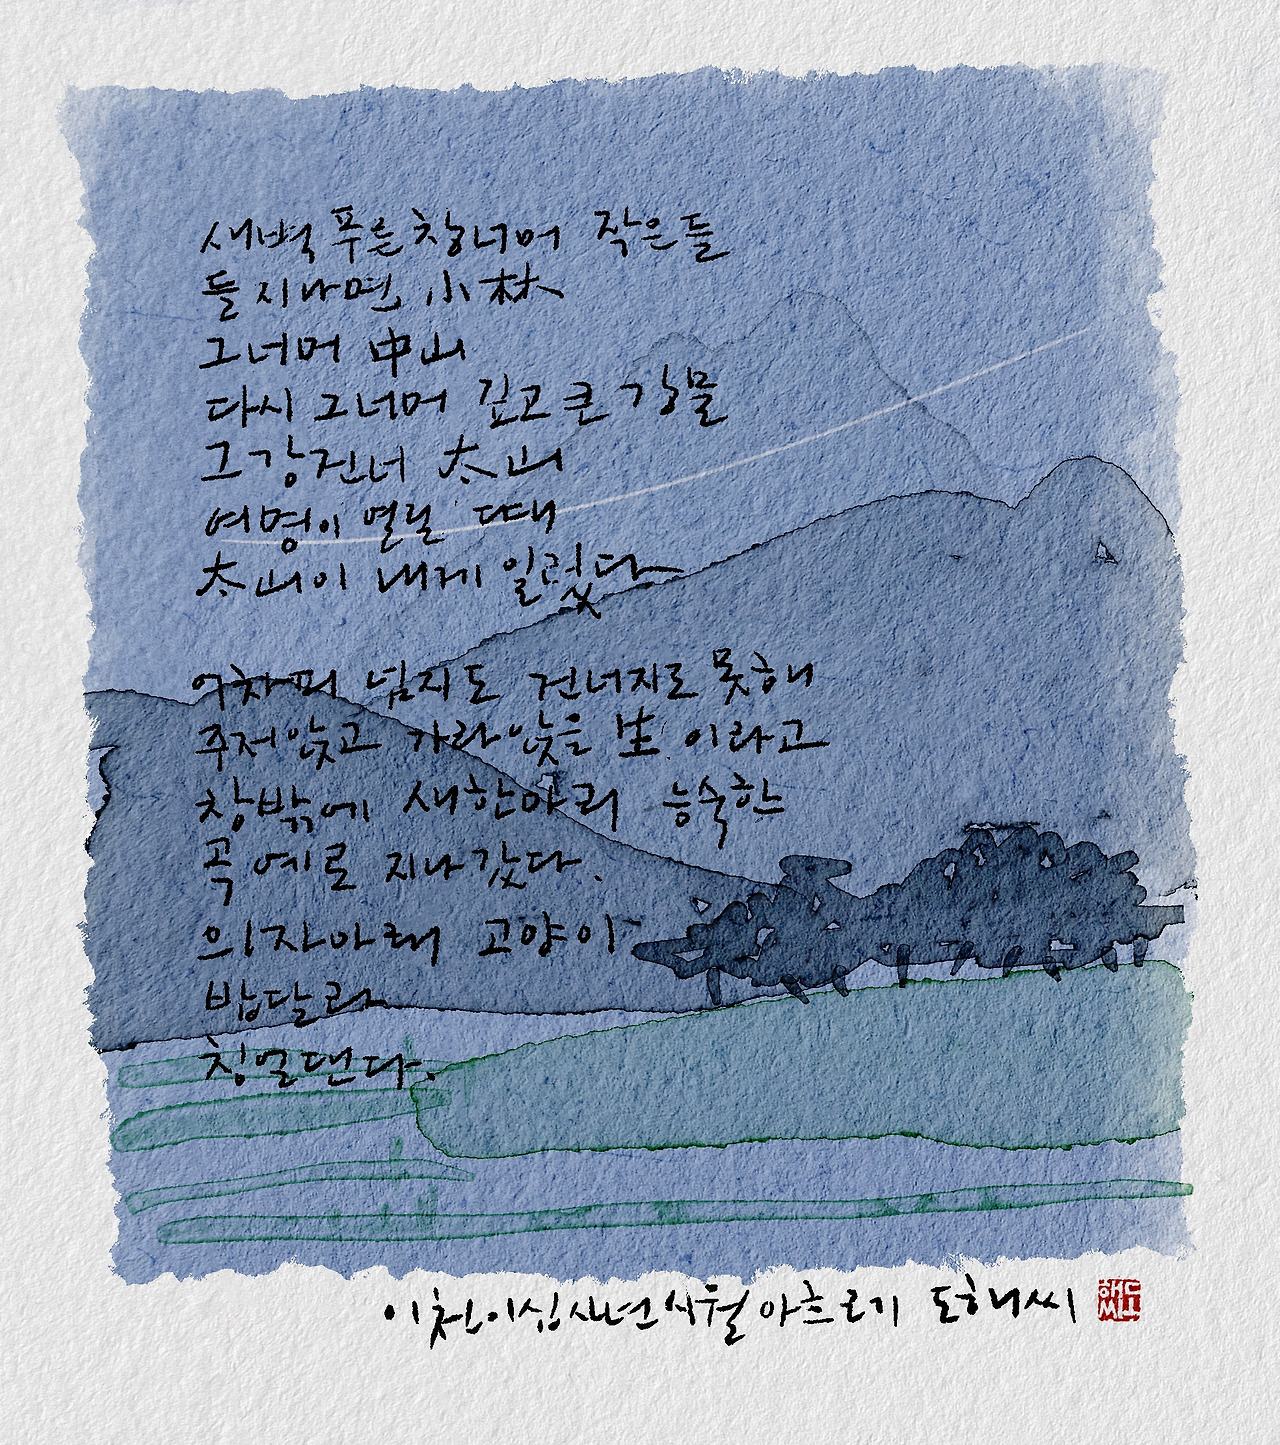 새벽 푸른 창너머 작은 들
들 지나면 小林
그너머 中山
다시 그너머 깊고 큰 강물
그강건너 太山
여명이 열릴 때
太山이 내게 일렀다
어차피 넘지도 건너지도 못해
주저앉고 가라앉을 生이라고
창밖에 새한마리 능숙한
곡예로 지나갔다.
의자아래 고양이
밥달라
칭얼댄다.
이천이십사년 시월 아흐레기 도해씨
도해씨